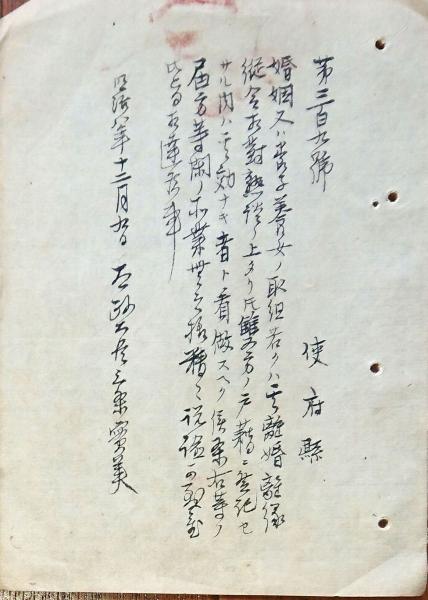 第二百九號
使府縣
婚姻又ハ養子養女ノ取組若クハ其離婚離縁
縦令相對熟談ノ上タリ𪜈雖双方ノ戸籍ニ登記セ
サル内ハ其効ナキ者ト看做スヘク候条右等ノ
届方等閑ノ所業無之様精々説諭可致置
此旨相達候事
明治八年十二月九日 太政大臣三条實美